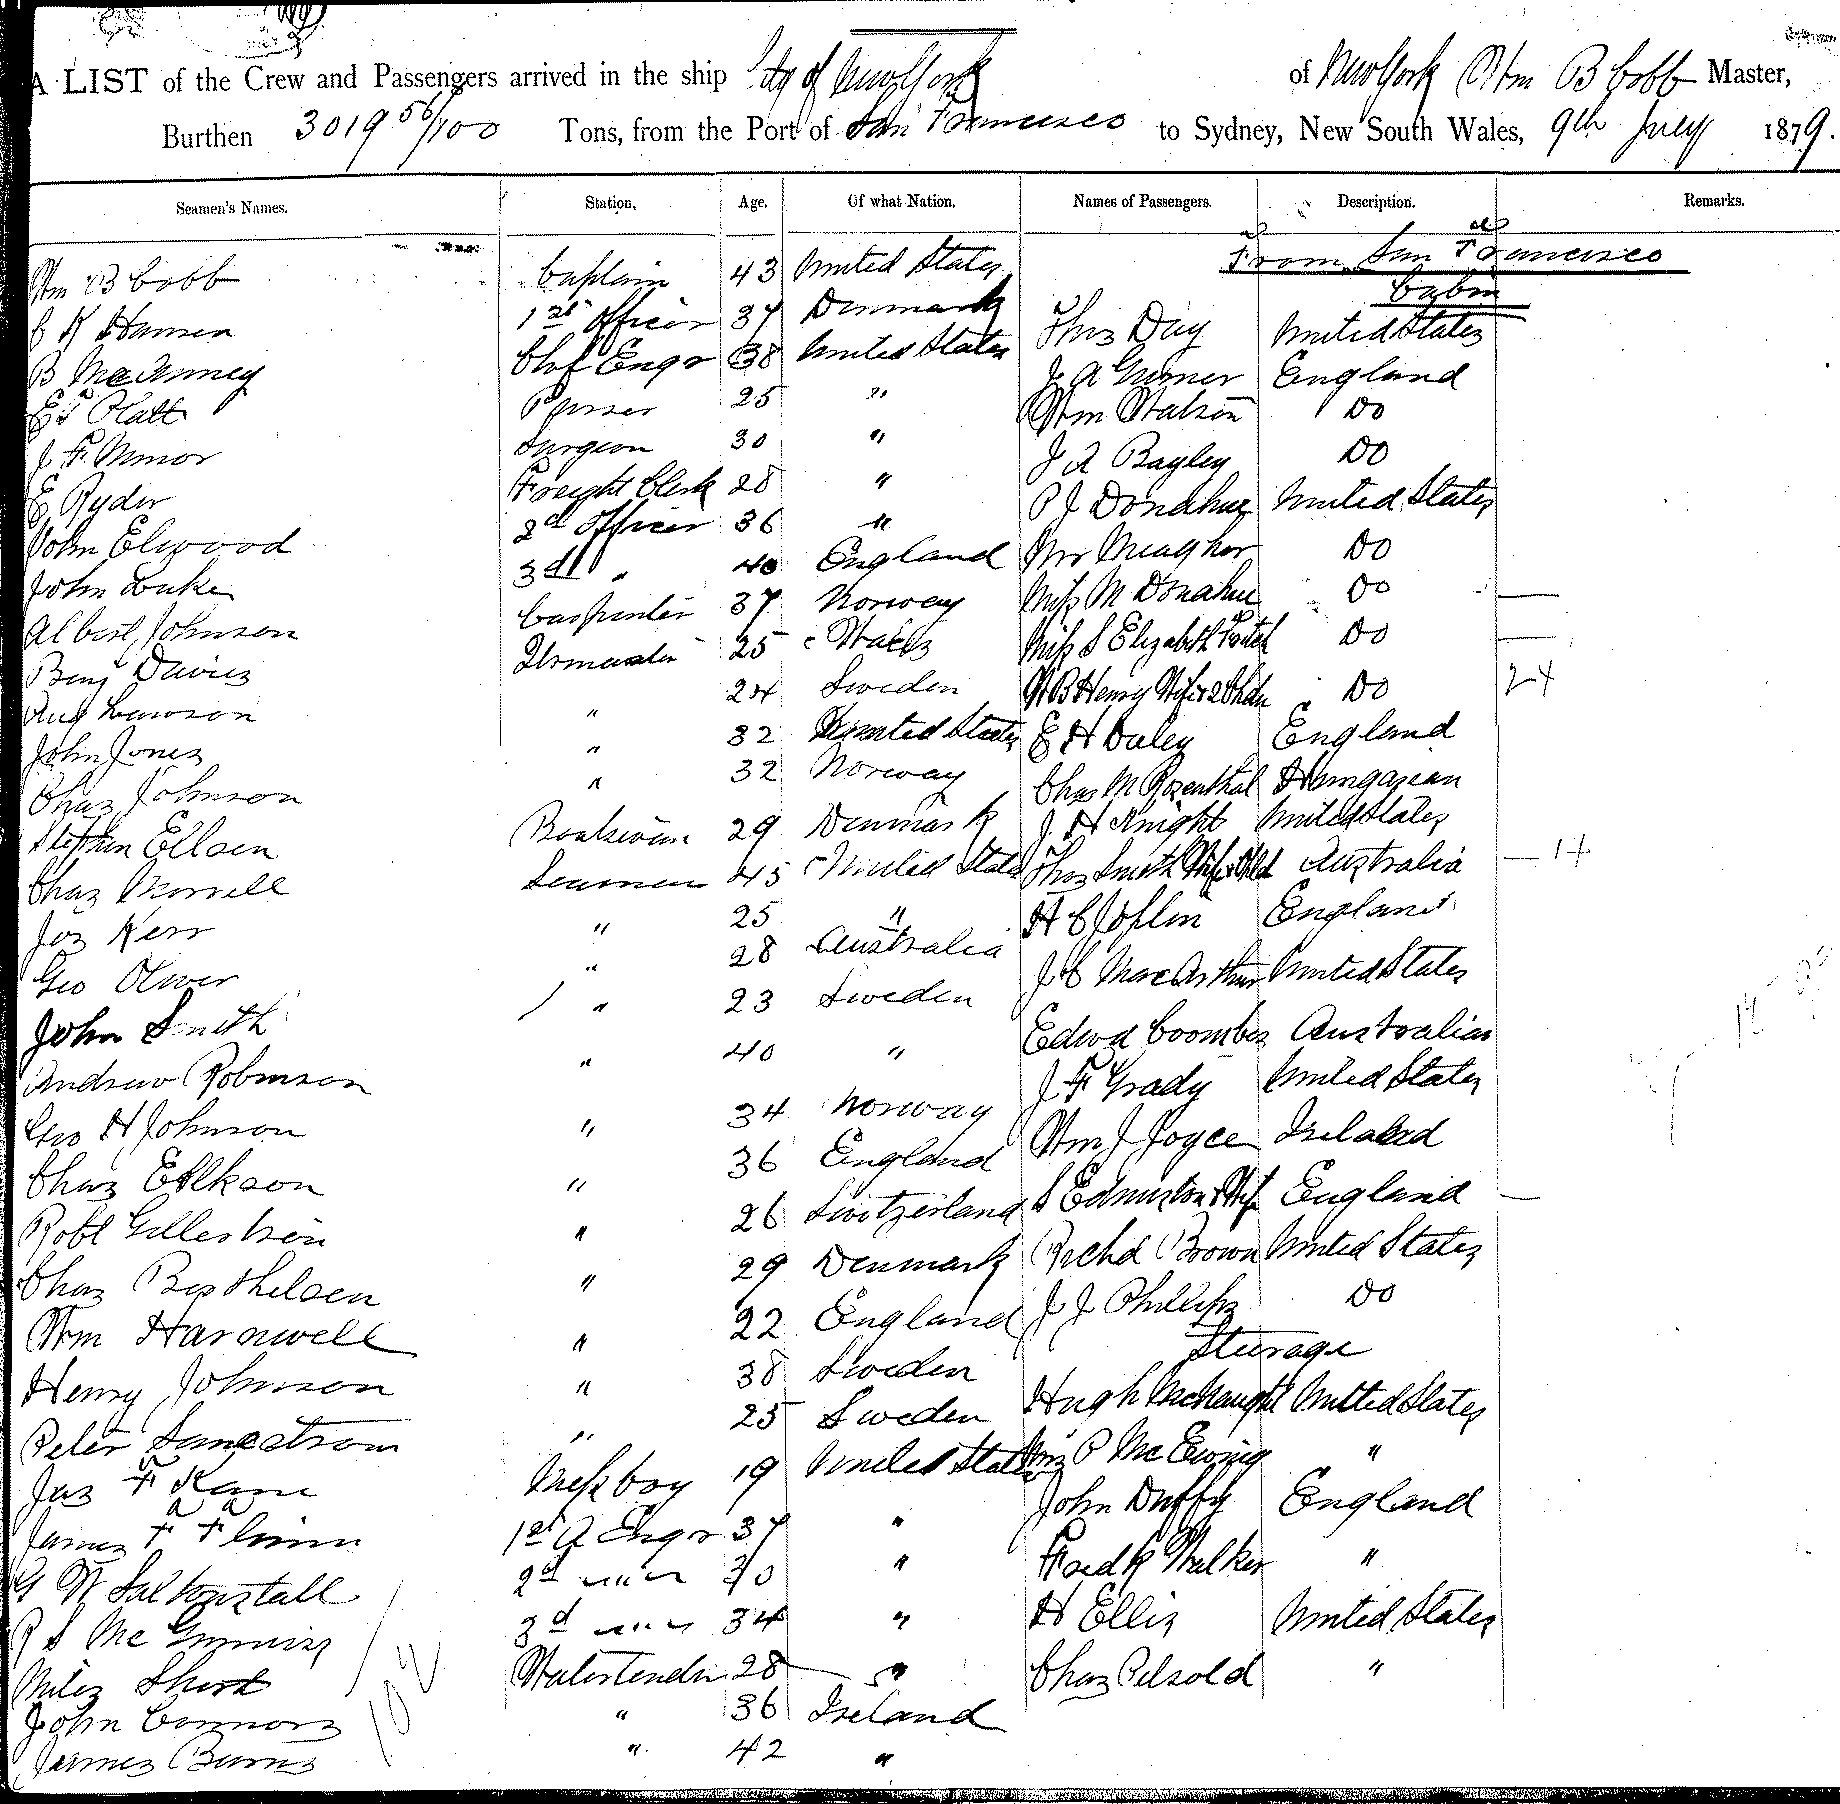 A LIST of the Crew and Passengers arrived in the ship City of New York of New York Wm B Cobb Master,
Burthen 3019 56/100 Tons, from the Port of San Francisco to Sydney, New South Wales, 9th July 1879.
Seamen's Names. Station. Age. Of what Nation. Names of Passengers. Description. Remarks.
From San Francisco
Cabin
Wm B Cobb Captain 43 United States
C H Hansen 1st Officer 37 Denmark Thos Day United States
B McKinney Chf Engr 38 United States J A Turner England
Platt Purser 25 " Wm Watson Do
J F Minor Surgeon 30 " J A Bagley Do
E Ryder Freight Clerk 28 " P J Donahue United States
John Elwood 2d Officer 36 " Mrs Meagher Do
John Luke 3d " 40 England Miss M Donahue Do
Albert Johnson Carpenter 37 Norway Miss S Elizabeth Do
Benj Davies Qrmaster 25 Wales W B Henry Wife & 2 Chdn Do 24
Aug Lawson " 24 Sweden E H Daley England
John Jones " 32 United States Chas M Rosenthal Hungarian
Chas Johnson " 32 Norway J H Knight United States
Stephen Ellsen Boatswain 29 Denmark Thos Smith Wife & Chld Australia 14
Chas Morrell Seaman 45 United States H C Joplin England
Jos Kerr " 25 " J C MacArthur United States
Geo Oliver " 28 Australia Edwd Coombes Australian
John Smith " 23 Sweden J F Grady United States
Andrew Robinson " 40 " Wm J Joyce Ireland
Geo H Johnson " 34 Norway S Edmiston & Wife England
Chas Erikson " 36 England Richd Brown United States
Robt " 26 Switzerland J J Phillips Do
Chas Berthelsen " 29 Denmark Steerage
Wm Harnwell " 22 England Hugh McNaught United States
Henry Johnson " 38 Sweden P McEwing "
Peter " 25 Sweden John Duffy England
Jas F Kane Messboy 19 United States Fredk Walker "
James F Flinn 1st A Engr 37 " H Ellis United States
W Saltonstall 2d " " " 30 " Chas Pelsold "
McGinniss 3d " " " 34 "
Miles Short Watertender 28 "
John Connors " 36 Ireland
James Burns " 42 "
102